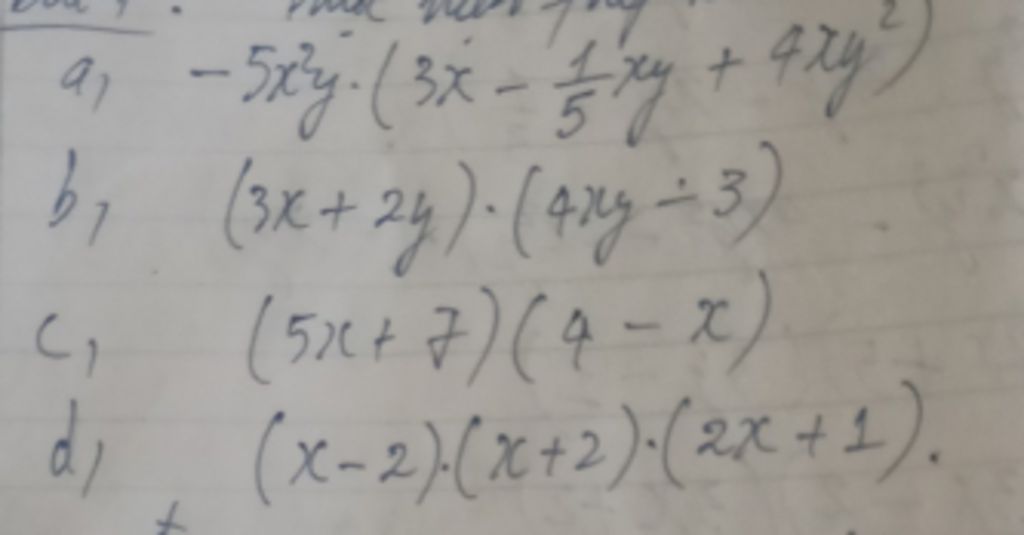 a, -5x²y.(3x - 1/5 xy + 4xy²)
b, (3x + 2y).(4xy - 3)
c, (5x + 7)(4 - x)
d, (x-2).(x+2).(2x+1).